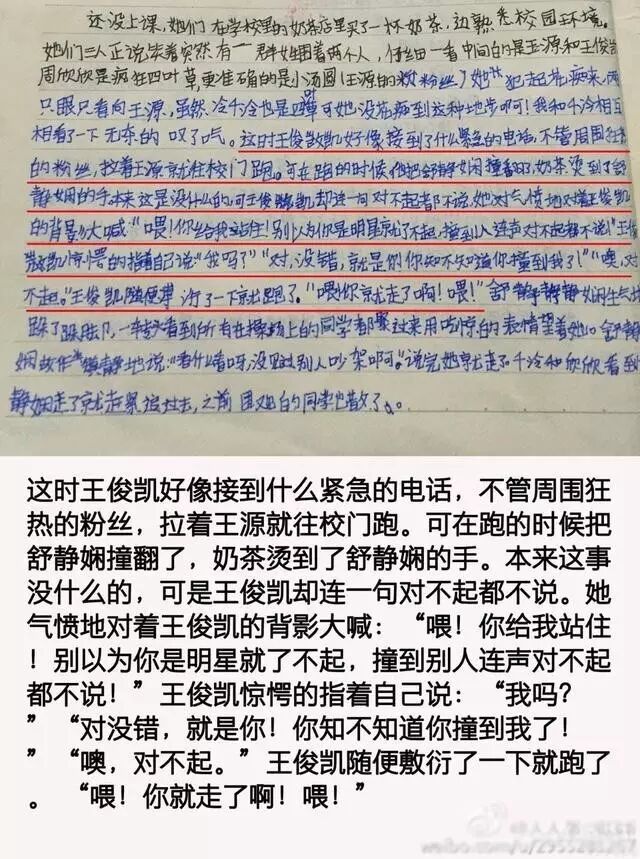 还没上课，她们在学校里的奶茶店里买了一杯奶茶，边熟悉校园环境。
她们三人正说笑着突然有一群女生围着两个人，仔细一看中间的是王源和王俊凯
周欣欣是疯狂四叶草，更准确的是小汤圆（王源的粉丝）她 犯起花痴来，两
只眼只看向王源，虽然 千冷也是四叶草可她没花痴到这种地步啊！我和千冷相互
相看了一下无奈的 叹了口气。这时王俊凯好像接到了什么紧急的电话，不管周围狂热
的粉丝，拉着王源就往校门跑。可在跑的时候他把舒静娴撞翻了，奶茶烫到了舒
静娴的手。本来这是没什么的，可王俊凯却连一句对不起都不说。她对气愤地对着王俊凯
的背影大喊“喂！你给我站住！别以为你是明星就了不起，撞到人连声对不起都不说！”王俊
凯惊愕的指着自己说“我吗？”“对，没错，就是你！你知不知道你撞到我了！”“噢，对
不起。”王俊凯随便 了一下就跑了。“喂你就走了啊！喂！”舒静娴生气地
跺了跺脚，一转头看到所有在操场上的同学都 过来用吃惊的表情望着她。舒静
娴故作 镇静地说：“看什么看呀，没见过别人吵架啊。”说完她就走了千冷和欣欣看到
静娴走了就赶紧追过去，之前围观的同学也散了。
这时王俊凯好像接到什么紧急的电话，不管周围狂
热的粉丝，拉着王源就往校门跑。可在跑的时候把
舒静娴撞翻了，奶茶烫到了舒静娴的手。本来这事
没什么的，可是王俊凯却连一句对不起都不说。她
气愤地对着王俊凯的背影大喊：“喂！你给我站住
！别以为你是明星就了不起，撞到别人连声对不起
都不说！”王俊凯惊愕的指着自己说：“我吗？
”“对没错，就是你！你知不知道你撞到我了！
”“噢，对不起。”王俊凯随便敷衍了一下就跑了
。“喂！你就走了啊！喂！”